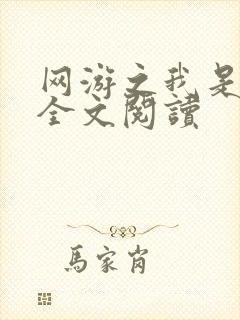 网游之我是
全文閱讀
馬家肖